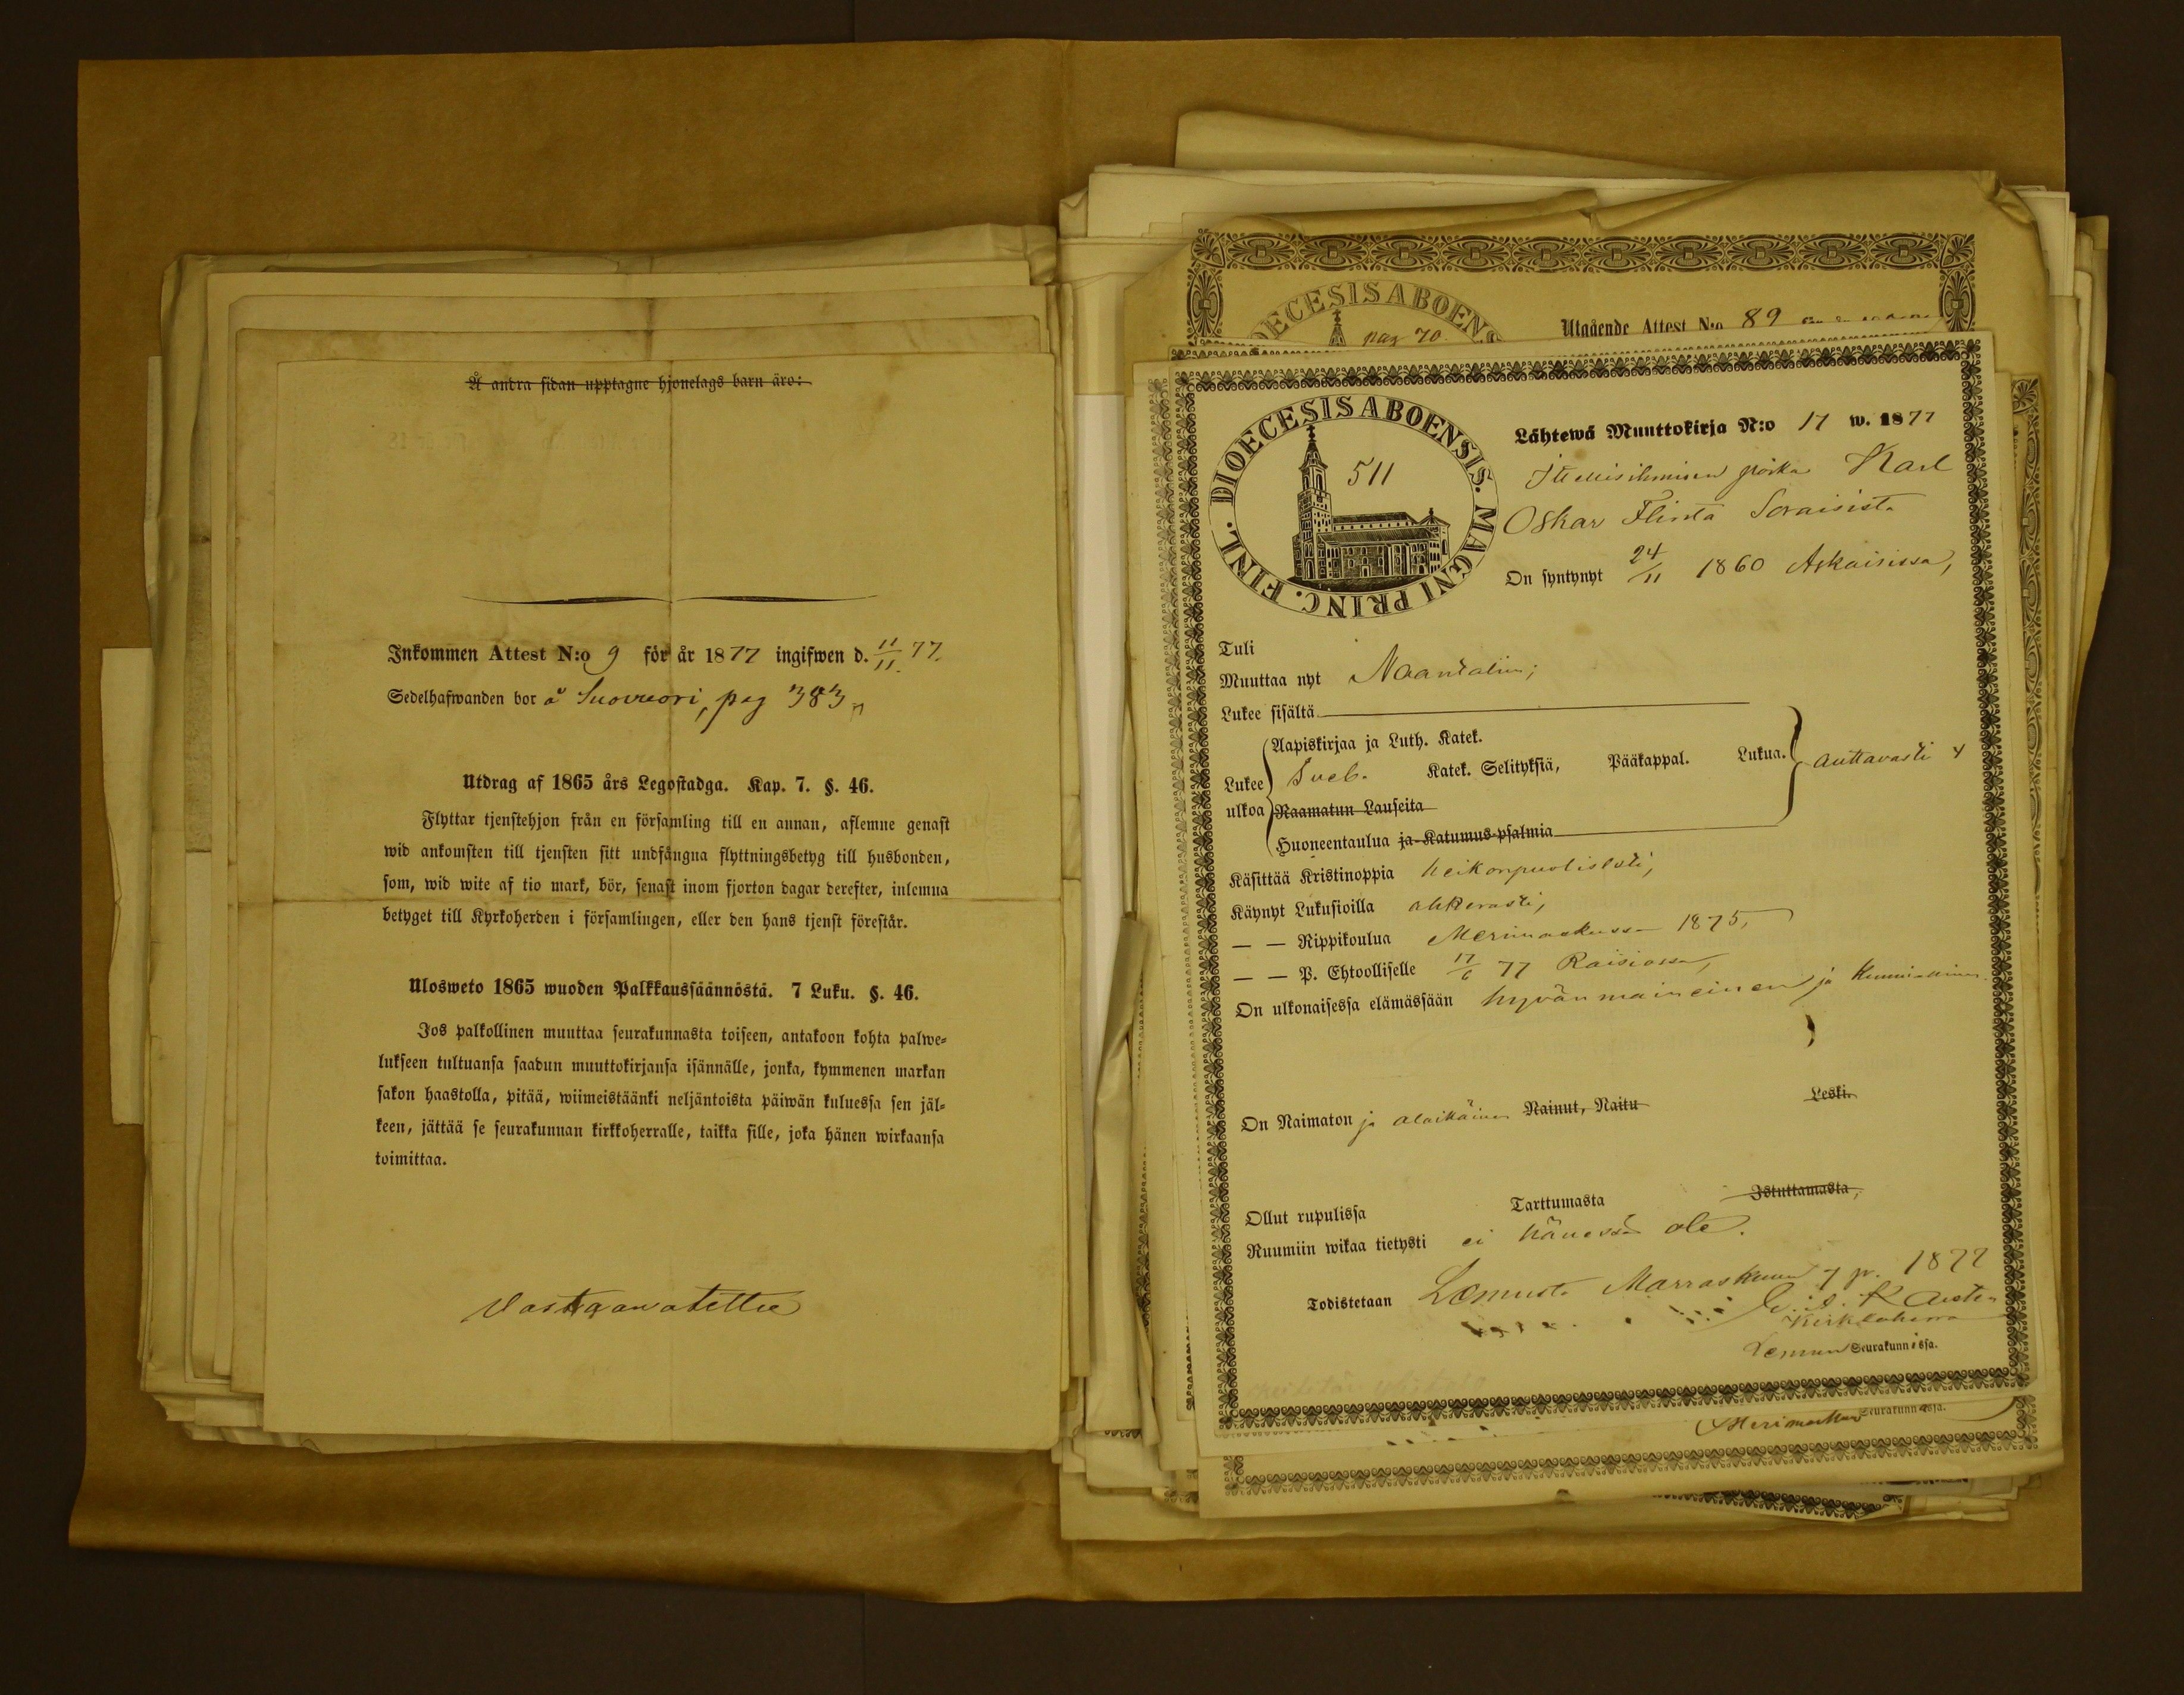 Å andra sidan upptagne hjonelags barn äro:
Inkommen Attest N:o 9 för år 1877 ingifwen d. 11/11 77.
Sedelhafwanden bor å Suovuori, pag 383
Utdrag af 1865 års Legostadga. Kap. 7. §. 46.
Flyttar tjenstehjon från en församling till en annan, aflemne genast
wid ankomsten till tjensten sitt undfångna flyttningsbetyg till husbonden,
som, wid wite af tio mark, bör, senast inom fjorton dagar derefter, inlemna
betyget till Kyrkoherden i församlingen, eller den hans tjenst förestår.
Ulosweto 1865 wuoden Palkkaussäännöstä. 7 Luku. §. 46.
Jos palkollinen muuttaa seurakunnasta toiseen, antakoon kohta palwe-
lukseen tultuansa saadun muuttokirjansa isännälle, jonka, kymmenen markan
sakon haastolla, pitää, wiimeistäänki neljäntoista päiwän kuluessa sen jäl-
keen, jättää se seurakunnan kirkkoherralle, taikka sille, joka hänen wirkaansa
toimittaa.
Vastaanotettu
DIOECESIS ABOENS
pag 70.
Utgående Attest N:o 89
DIOECESIS ABOENSIS. MAGNI PRINC. FINL.
511
Lähtewä Muuttokirja N:o 17 w. 1877
Itsellisihmisen poika Karl
Oskar Flinta Soraisista
On syntynyt 24/11 1860 Askaisissa,
Tuli
Muuttaa nyt Naantaliin;
Lukee sisältä
Lukee ulkoa
Aapiskirjaa ja Luth. Katek.
Sveb. Katek. Selityksiä, Pääkappal. Lukua. auttavasti
Raamatun Lauseita
Huoneentaulua ja Katumus-psalmia
Käsittää Kristinoppia heikonpuolisesti,
Käynyt Lukusioilla ahkerasti,
— — Rippikoulua Merimaskussa 1875,
— — P. Ehtoolliselle 17/6 77 Raisiossa,
On ulkonaisessa elämässään hyvänmaineinen ja kunniallinen
On Naimaton ja alaikäinen Nainut, Naitu Leski.
Ollut rupulissa Tarttumasta Istuttamasta,
Ruumiin wikaa tietysti ei hänessä ole.
Todistetaan Lemusta Marraskuun 7 p. 1877
Kirkkoherra
Lemun Seurakunnissa.
Merimaskun Seurakunnassa.